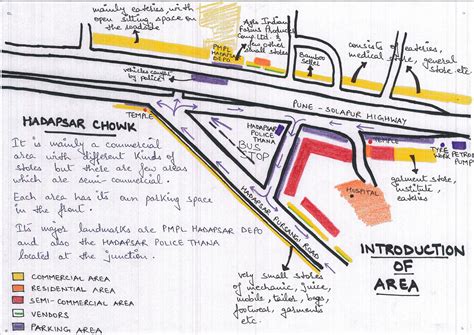 mainly eateries with
open sitting space on
the roadside
Asha Indian
Farms Producer
Comp. Ltd. &
few other
small stores
PMPL
HADAPSAR
DEPO
Bamboo
Seller
consists of eateries,
medical store, general
store etc.
vehicles caught
by police
PUNE - SOLAPUR HIGHWAY
TEMPLE
HADAPSAR CHOWK
It is mainly a commercial
area with different kinds of
stores but there are few areas
which are semi-commercial.
Each area has its own parking space
in the front.
Its major landmarks are PMPL HADAPSAR DEPO
and also the HADAPSAR POLICE THANA
located at the junction.
HADAPSAR
POLICE
THANA
BUS
STOP
TEMPLE
TYPE
WORK
PETROL
PUMP
garment store,
institute,
eateries
HOSPITAL
HADAPSAR FURSANGI ROAD
very small stores
of mechanic, juice,
mobile, tailor, bags,
footwear, garments
etc.
INTRODUCTION
OF
AREA
COMMERCIAL AREA
RESIDENTIAL AREA
SEMI-COMMERCIAL AREA
VENDORS
PARKING AREA